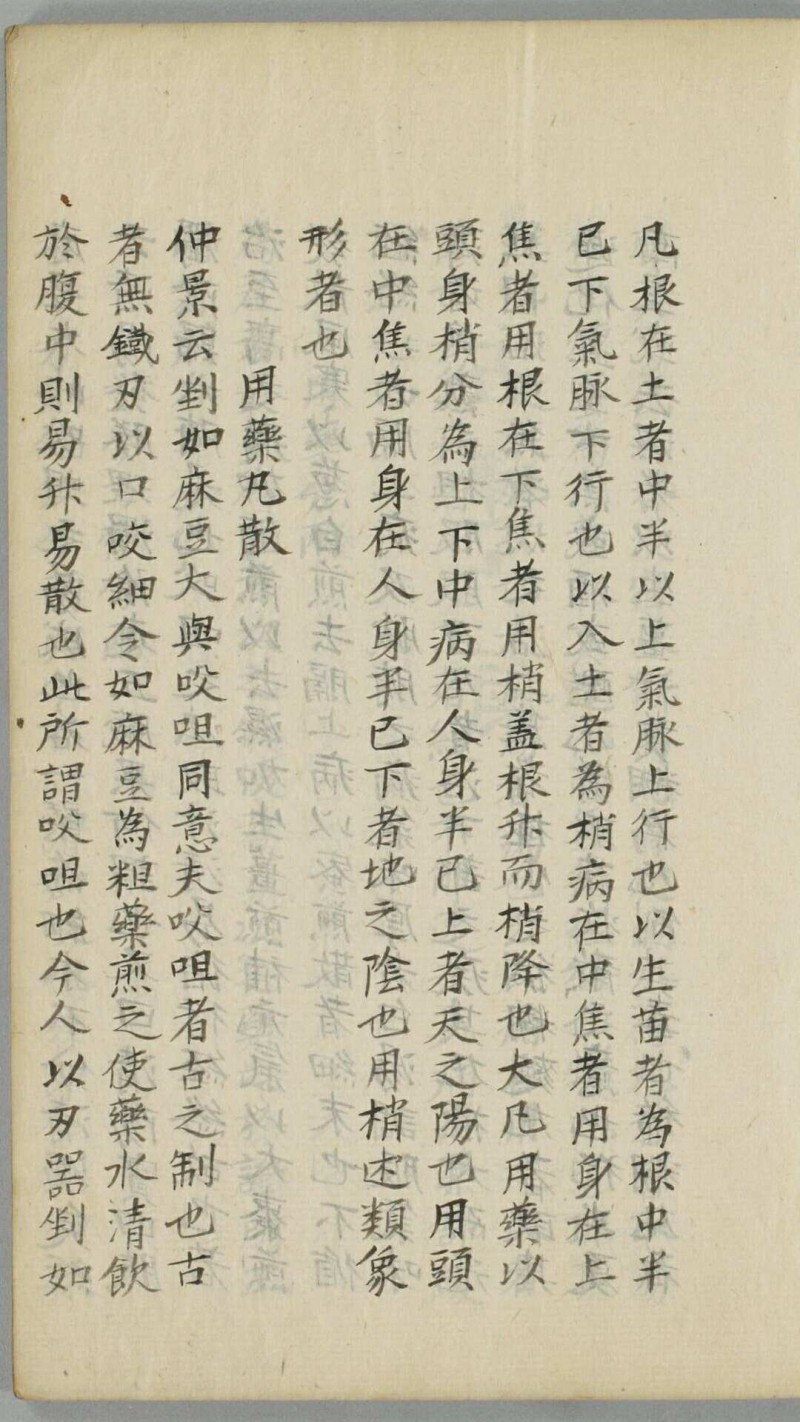 凡根在土者中半以上氣脉上行也以生苗者為根中半
已下氣脉下行也以入土者為梢病在中焦者用身在上
焦者用根在下焦者用梢盖根升而梢降也大凡用藥以
頭身梢分為上下中病在人身半已上者天之陽也用頭
在中焦者用身在人身半已下者地之陰也用梢迊類象
形者也
用藥凡散
仲景云剉如麻豆大與㕮咀同意夫㕮咀者古之制也古
者無鐡刃以口咬細令如麻豆為粗藥煎之使藥水清飲
於腹中則易升易散也此所謂㕮咀也今人以刃器剉如